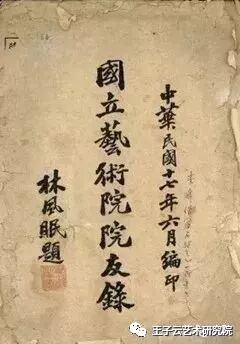 中華民國十七年六月編印
國立藝術院院友錄
林風眠題
王子云艺术研究院